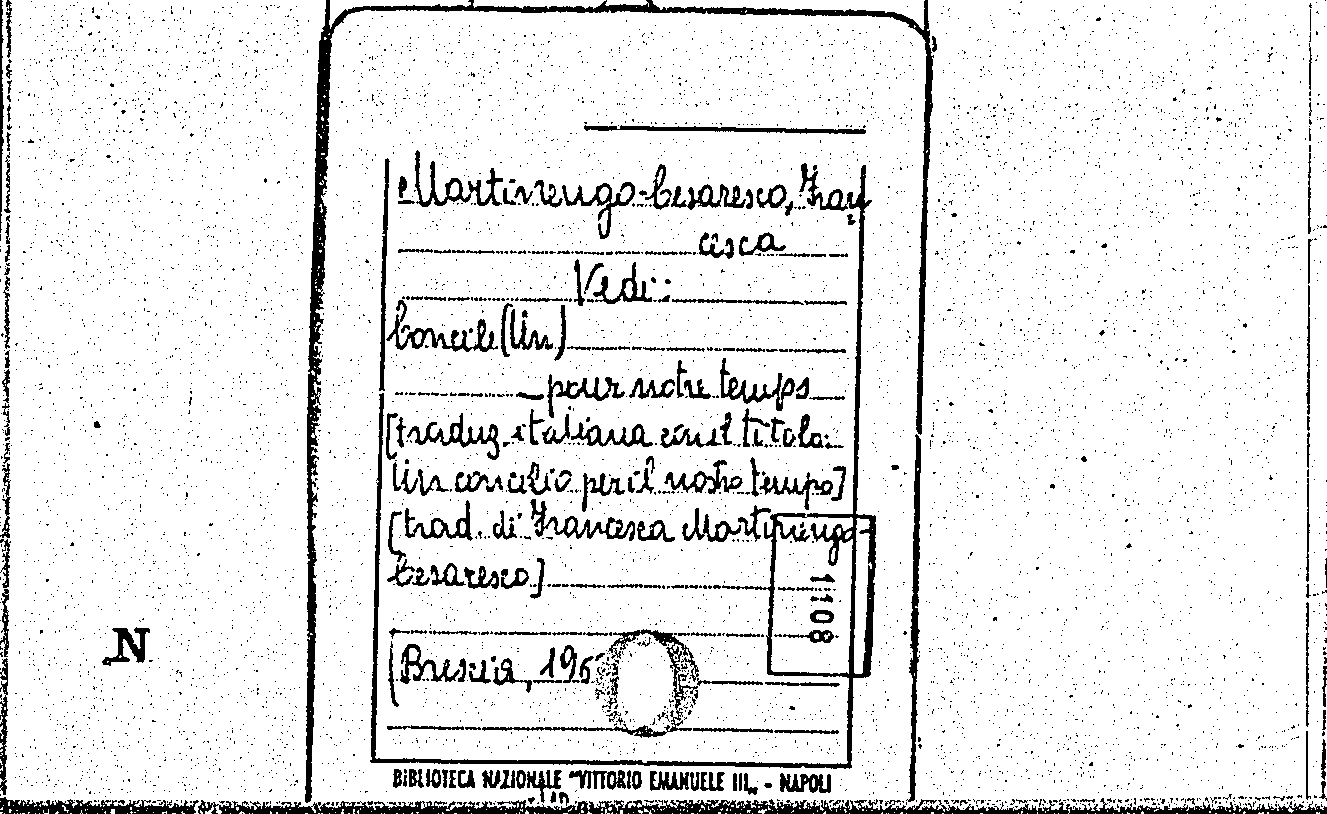 Martinengo-Cesaresco, Fran
cesca
Vedi:
Concile (Un)
_ pour notre temps
[traduz. italiana con il titolo:
Un concilio per il nostro tempo]
[trad. di Francesca Martinengo-
Cesaresco]
1108
(Brescia, 196
N
BIBLIOTECA NAZIONALE "VITTORIO EMANUELE III„ - NAPOLI